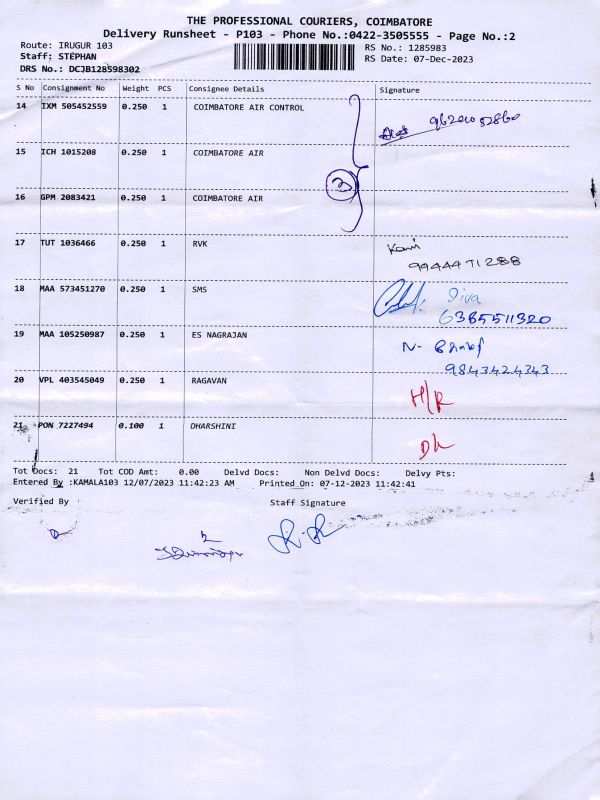 THE PROFESSIONAL COURIERS, COIMBATORE
Delivery Runsheet - P103 - Phone No.:0422-3505555 - Page No.:2
Route: IRUGUR 103 RS No.: 1285983
Staff: STEPHAN RS Date: 07-Dec-2023
DRS No.: DCJB128598302
S No Consignment No Weight PCS Consignee Details Signature
14 IXM 505452559 0.250 1 COIMBATORE AIR CONTROL
15 ICH 1015208 0.250 1 COIMBATORE AIR
3
16 GPM 2083421 0.250 1 COIMBATORE AIR
17 TUT 1036466 0.250 1 RVK
9944471288
18 MAA 573451270 0.250 1 SMS Siva
6385511320
19 MAA 105250987 0.250 1 ES NAGRAJAN N-
9843424343
20 VPL 403545049 0.250 1 RAGAVAN H/R
21 PON 7227494 0.100 1 DHARSHINI DL
Tot Docs: 21 Tot COD Amt: 0.00 Delvd Docs: Non Delvd Docs: Delvy Pts:
Entered By :KAMALA103 12/07/2023 11:42:23 AM Printed On: 07-12-2023 11:42:41
Verified By Staff Signature